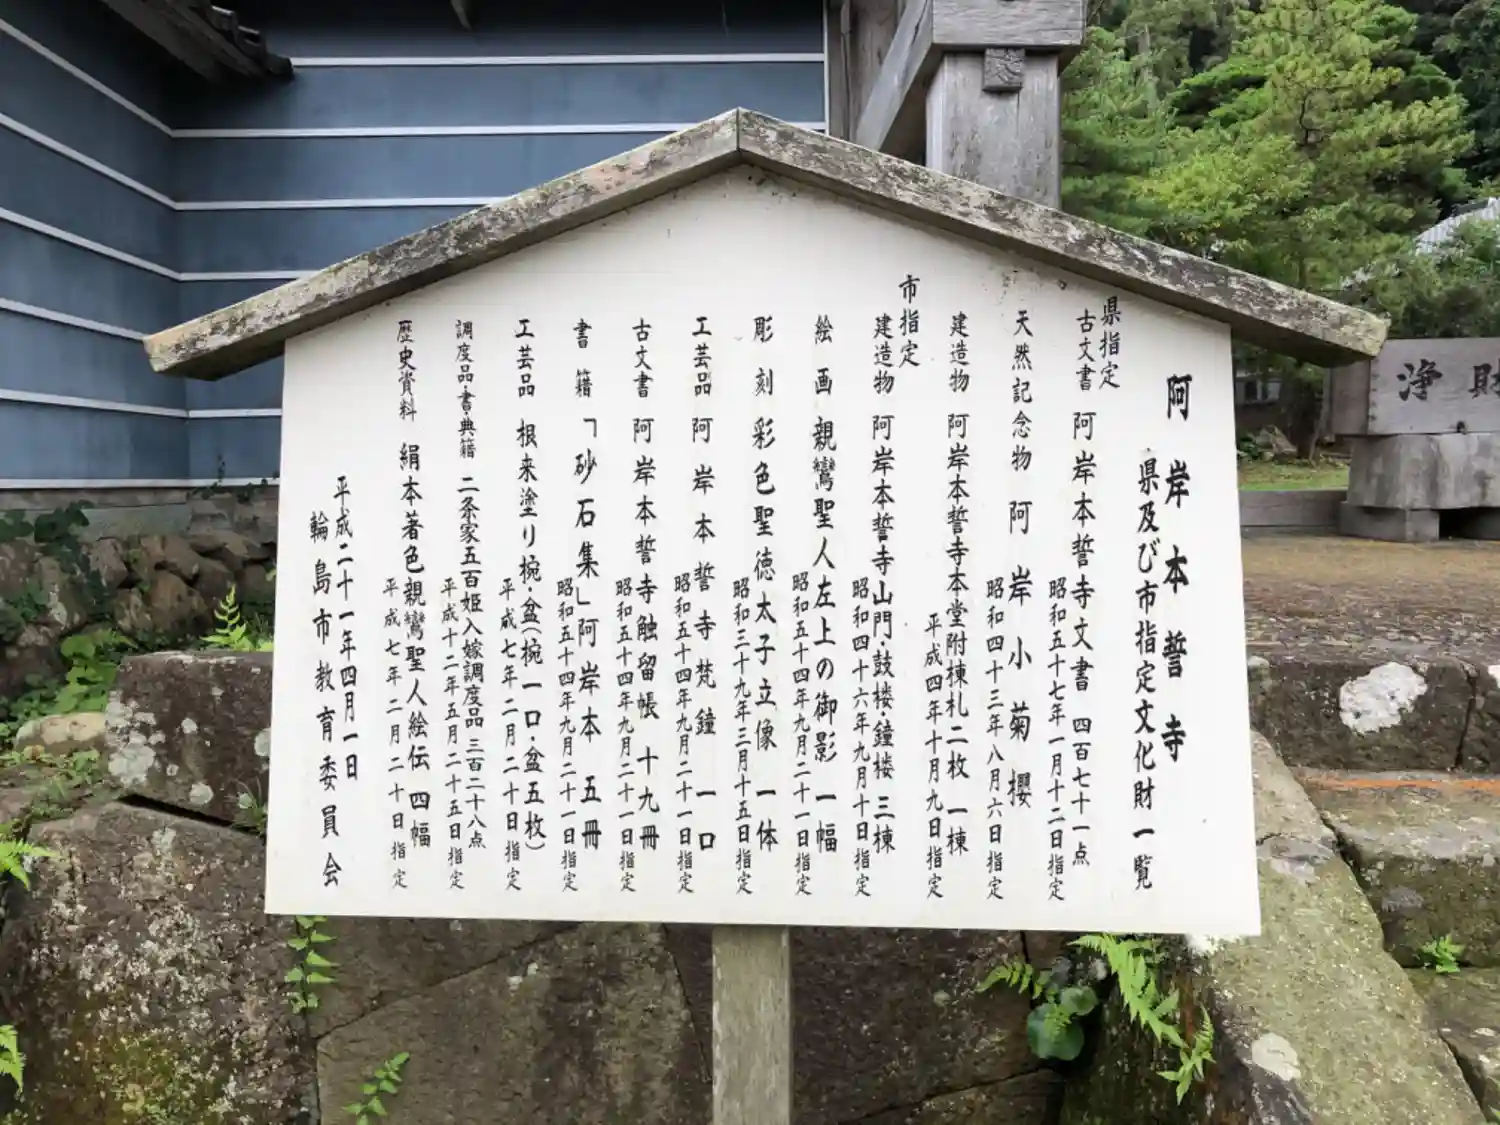 阿岸本誓寺
県及び市指定文化財一覧
県指定
古文書 阿岸本誓寺文書 四百七十一点
昭和五十七年一月十二日指定
天然記念物 阿岸小菊櫻
昭和四十三年八月六日指定
建造物 阿岸本誓寺本堂附棟札二枚 一棟
平成四年十月九日指定
市指定
建造物 阿岸本誓寺山門・鼓楼・鐘楼 三棟
昭和四十六年九月十日指定
絵画 親鸞聖人左上の御影 一幅
昭和五十四年九月二十一日指定
彫刻 彩色聖徳太子立像 一体
昭和三十九年三月十五日指定
工芸品 阿岸本誓寺梵鐘 一口
昭和五十四年九月二十一日指定
古文書 阿岸本誓寺触留帳 十九冊
昭和五十四年九月二十一日指定
書籍 「砂石集」阿岸本 五冊
昭和五十四年九月二十一日指定
工芸品 根来塗り椀・盆(椀一口・盆五枚)
平成七年二月二十日指定
調度品・書・典籍 二条家五百姫入嫁調度品 三百二十八点
平成十二年五月二十五日指定
歴史資料 絹本著色親鸞聖人絵伝 四幅
平成七年二月二十日指定
平成二十一年四月一日
輪島市教育委員会
浄財